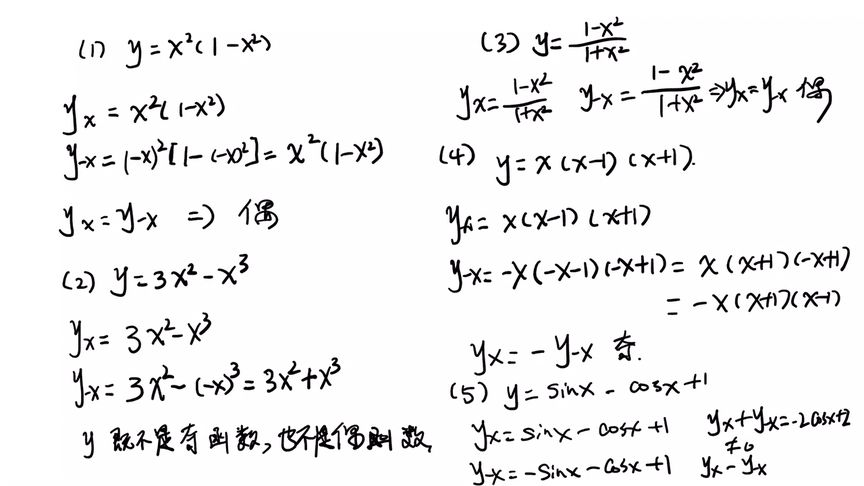 (1) y=x²(1-x²)
yx=x²(1-x²)
y-x=(-x)²[1-(-x)²]=x²(1-x²)
yx=y-x => 偶
(2) y=3x²-x³
yx=3x²-x³
y-x=3x²-(-x)³=3x²+x³
y 既不是奇函数,也不是偶函数,
(3) y=(1-x²)/(1+x²)
yx=(1-x²)/(1+x²) y-x=(1-x²)/(1+x²) ⇒yx=y-x 偶
(4) y=x(x-1)(x+1).
yx=x(x-1)(x+1)
y-x=-x(-x-1)(-x+1)=x(x+1)(-x+1)
=-x(x+1)(x-1)
yx=-y-x 奇.
(5) y=sinx-cosx+1
yx=sinx-cosx+1 yx+y-x=-2cosx+2
≠0
y-x=-sinx-cosx+1 yx-y-x